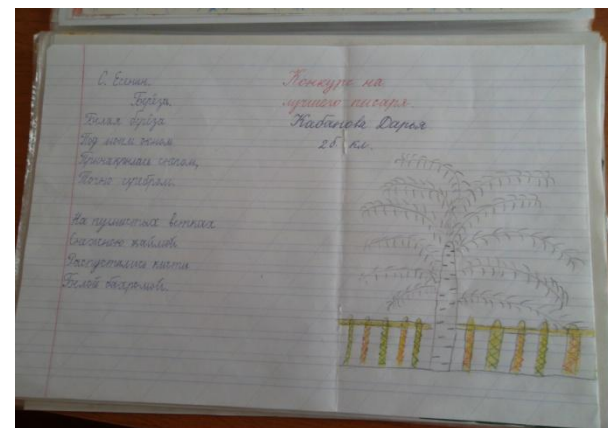 С. Есенин.
Берёза.
Белая берёза
Под моим окном
Принакрылась снегом,
Точно серебром.
На пушистых ветках
Снежною каймой
Распустились кисти
Белой бахромой.
Конкурс на
лучшего писаря.
Кабанова Дарья
2б кл.